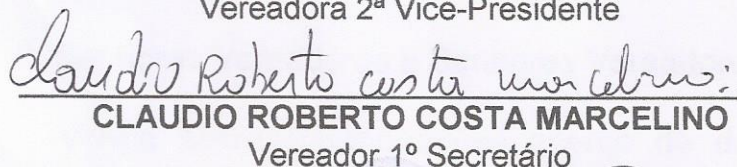 Vereadora 2ª Vice-Presidente
Claudio Roberto costa marcelino:
CLAUDIO ROBERTO COSTA MARCELINO
Vereador 1º Secretário